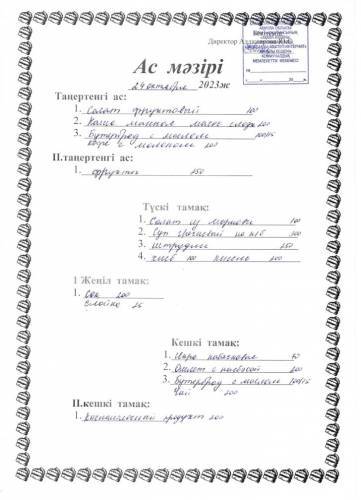 Директор
Ас мәзірі
24 октября 2023ж
Таңертенгі ас:
1. Салат фруктовый 100
2. Каша манная масл слоч 200
3. Бутерброд с маслом 100/15
кофе с молоком 200
ІІ.таңертенгі ас:
1. фрукты 250
Түскі тамақ:
1. Салат из моркови 100
2. Суп 300
3. штрудли 250
4. хлеб 100 кисель 200
1 Жеңіл тамақ:
1. Сок 200
Слойка 25
Кешкі тамақ:
1. Икра кабачковая
2. Омлет с колбасой 200
3. Бутерброд с маслом 100/15
чай 200
ІІ.кешкі тамақ:
1. Кисломолочный продукт 200